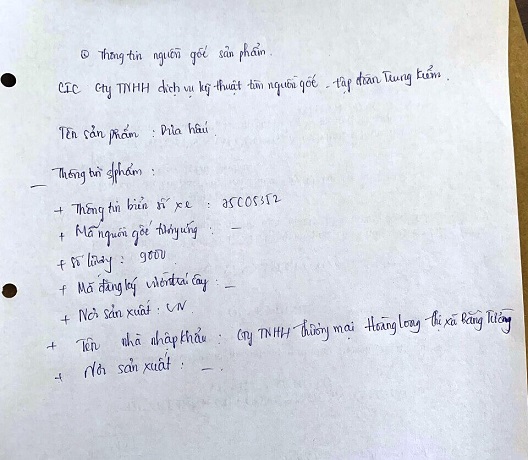 ① Thông tin nguồn gốc sản phẩm.
CIC Cty TNHH dịch vụ kỹ thuật tìm nguồn gốc - tập đoàn Trung Kiểm.
Tên sản phẩm : Dưa hấu.
— Thông tin s/phẩm :
+ Thông tin biển số xe : 25C05352
+ Mã nguồn gốc tương ứng : —
+ Số lượng : 9000
+ Mã đăng ký vườn trái cây : —
+ Nơi sản xuất : VN
+ Tên nhà nhập khẩu : Cty TNHH thương mại Hoàng Long thị xã Bằng Tường
+ Nơi sản xuất : —.